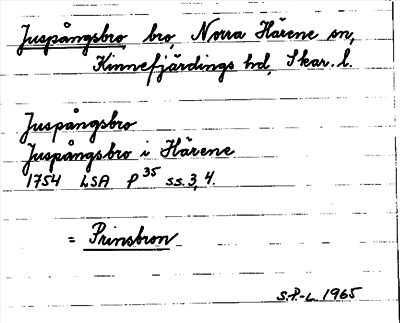 Juspångsbro, bro, Norra Härene sn,
Kinnefjärdings hd, Skar. l.
Juspångsbro
Juspångsbro i Härene
1754 LSA P 35 ss. 3, 4.
= Prinsbron
S.P-L. 1965